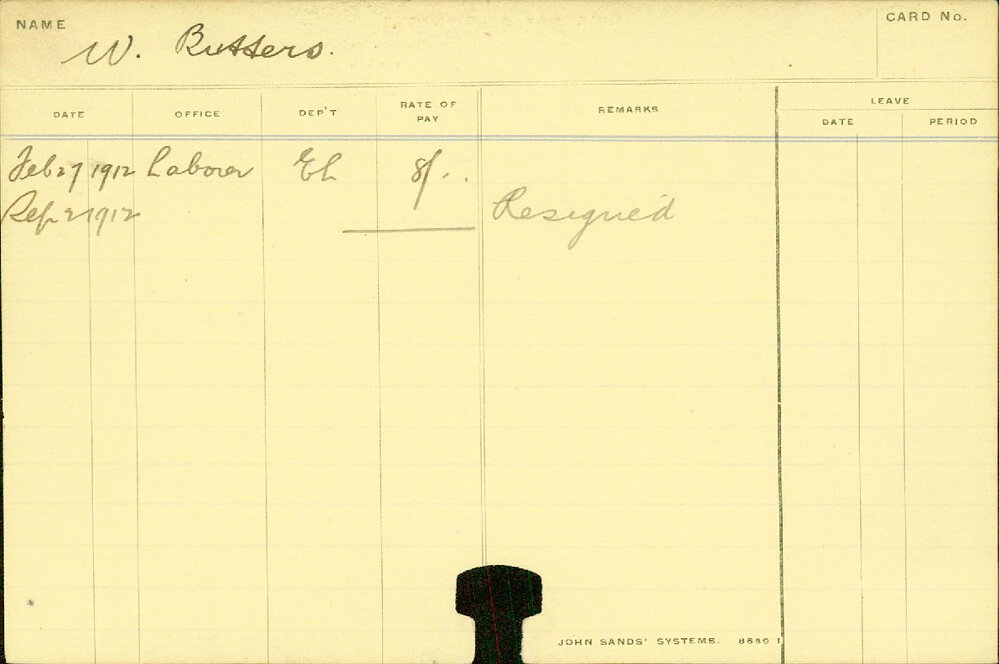 NAME W. Butters.
CARD No.
DATE OFFICE DEP'T RATE OF PAY REMARKS LEAVE
DATE PERIOD
Feb 27 1912 Laborer EL 8/..
Sep 2 1912 Resigned
JOHN SANDS' SYSTEMS. 8689 1